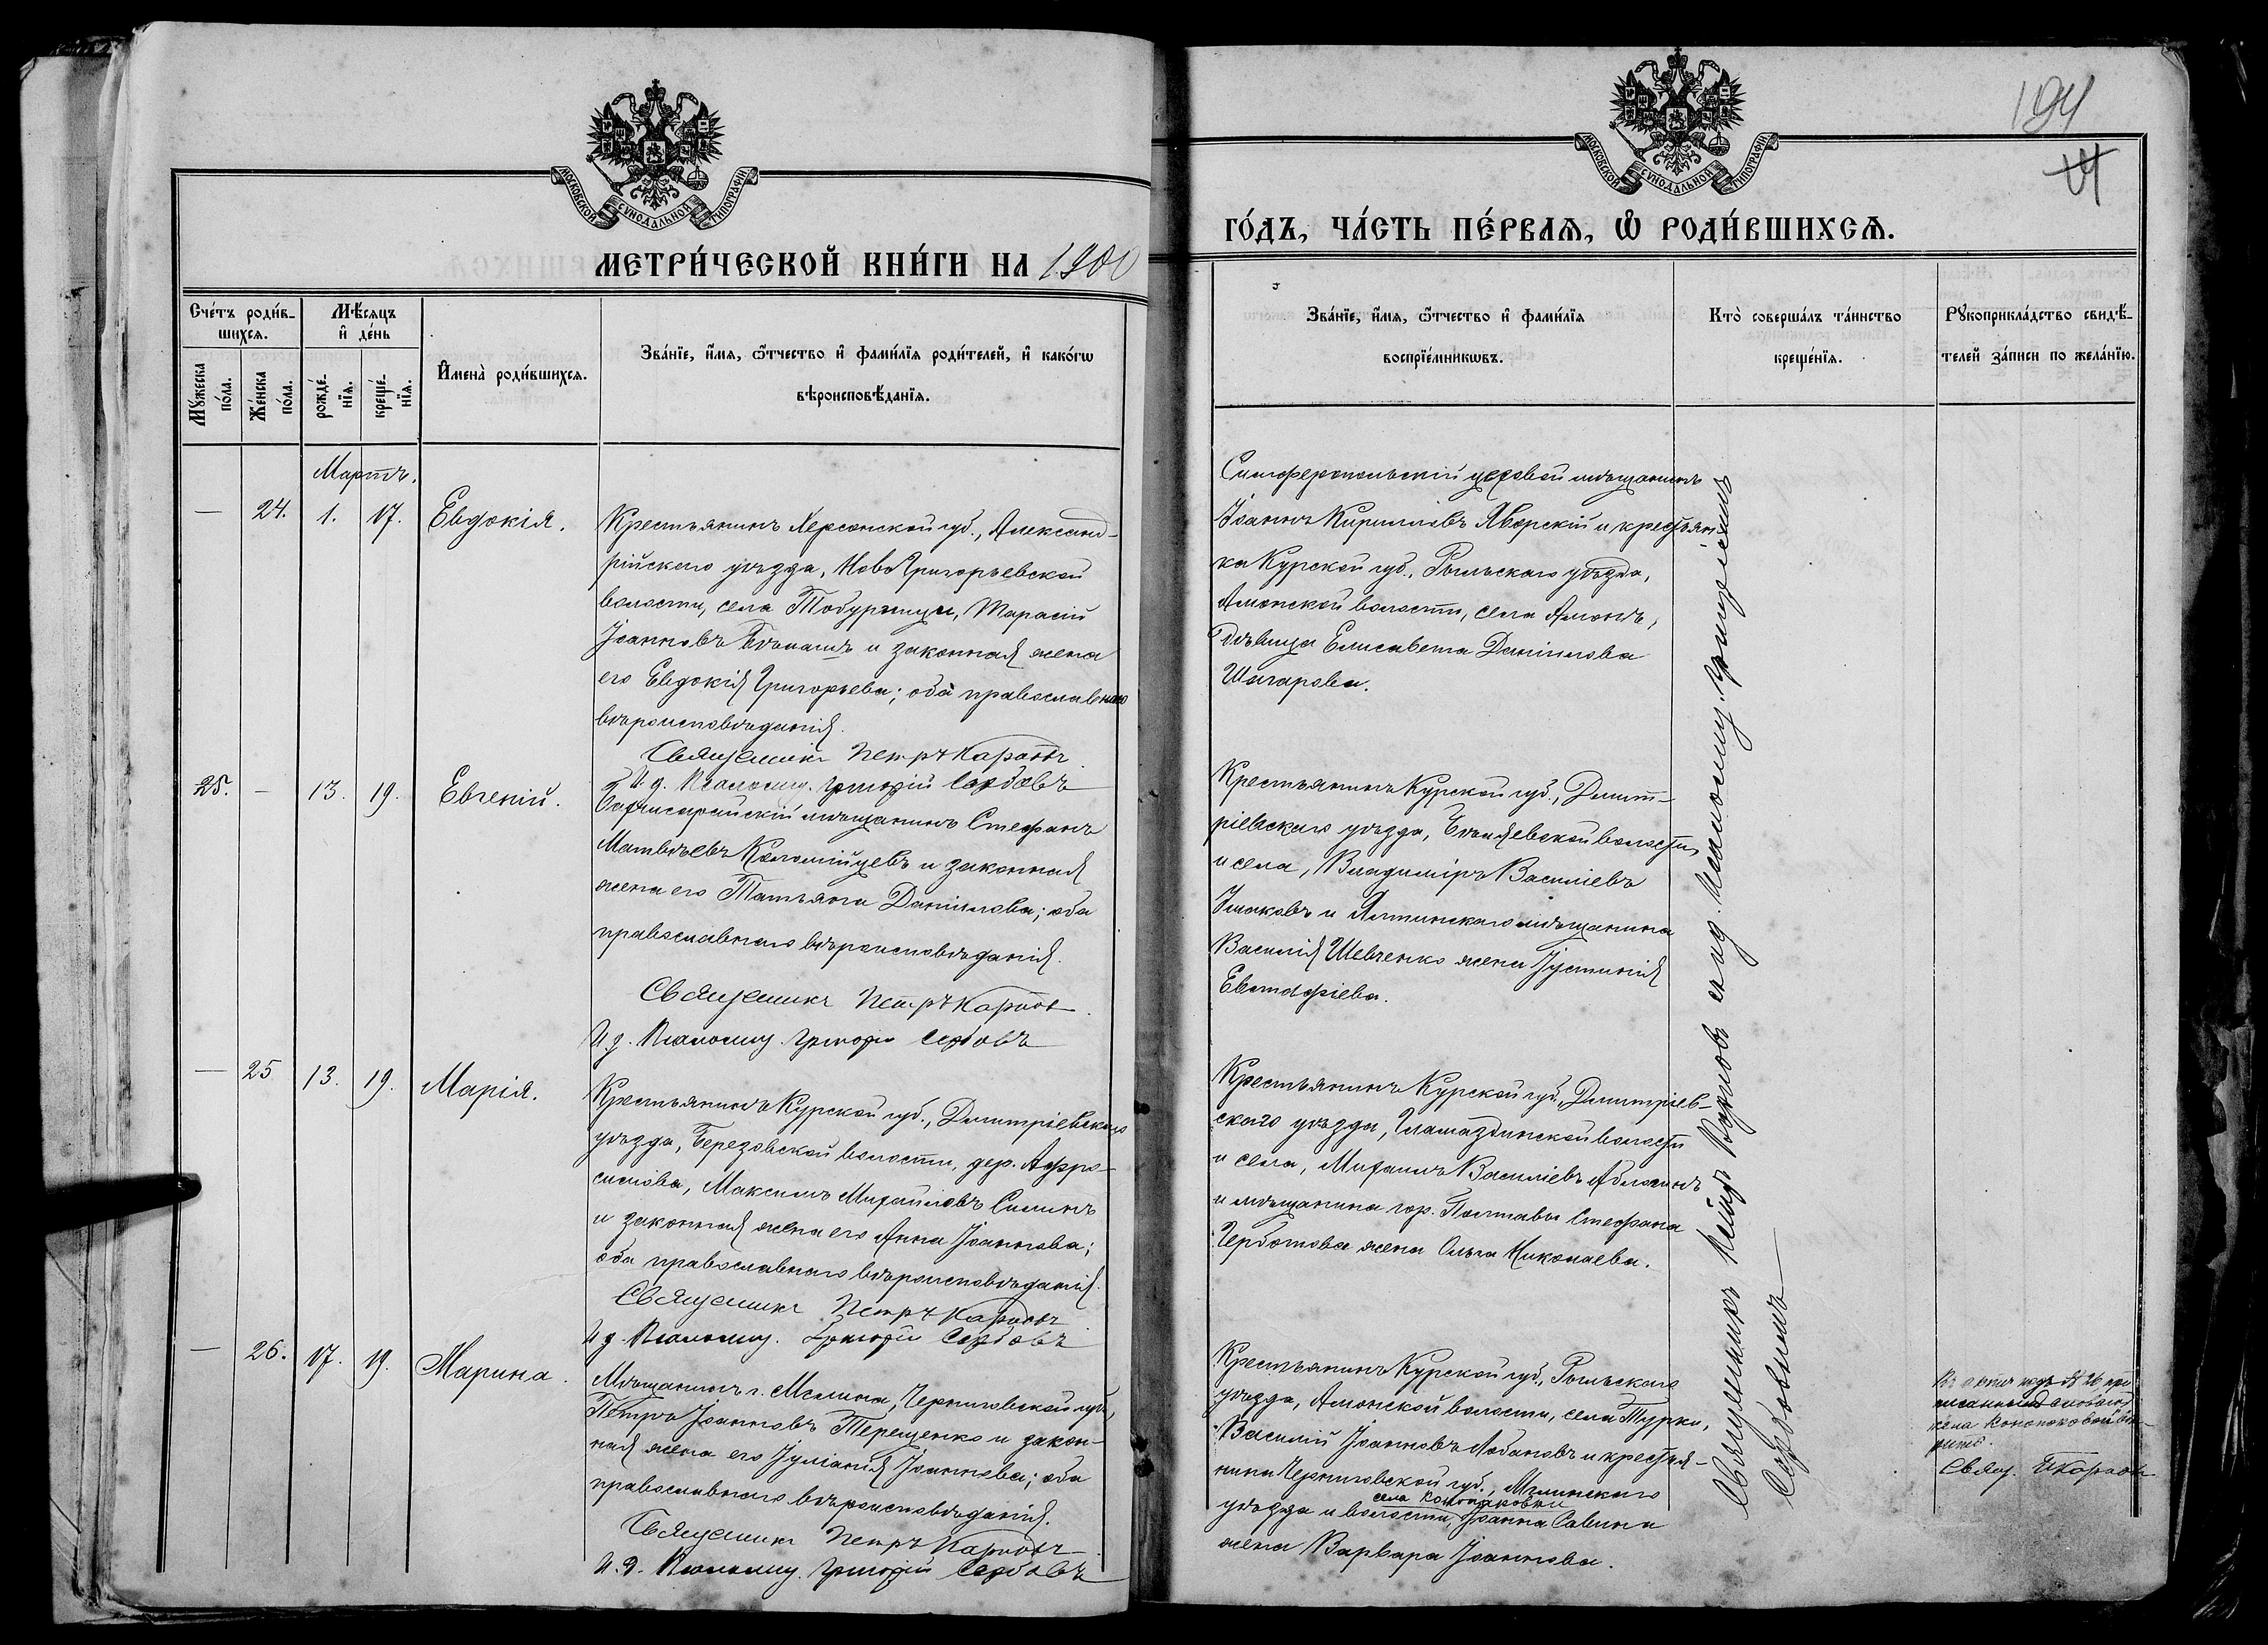 МОСКОВСКОЙ СѴНОДАЛЬНОЙ ТИПОГРАФІИ
МЕТРИ́ЧЕСКОЙ КНИ́ГИ НА 1900
Сче́тъ роди́в-
шихсѧ.
Мѣ́сѧцъ
и҆ де́нь
Мꙋ́жеска
по́ла.
Же́нска
по́ла.
рожде́-
нїѧ.
креще́-
нїѧ.
И҆мена̀ роди́вшихсѧ.
Зва́нїе, и҆́мѧ, ѻ҆́тчество и҆ фами́лїѧ роди́телей, и҆ како́гѡ
вѣроисповѣ́данїѧ.
Мартъ.
— 24. 1. 17. Евдокія.
Крестьянинъ Херсонской губ., Александ-
рійскаго уѣзда, НовоГригорьевской
волости, села Табурищи, Тарасій
Іоанновъ и законная жена
его Евдокія Григорьева; оба православнаго
вѣроисповѣданія.
Священникъ Петръ Карповъ
И. д. Псаломщ. Григорій Сербовъ
25. — 13. 19. Евгеній.
Бахчисарайскій мѣщанинъ Стефанъ
Матвѣевъ Коломійцевъ и законная
жена его Татьяна Даніилова; оба
православнаго вѣроисповѣданія.
Священникъ Петръ Карповъ
И. д. Псаломщ. Григорій Сербовъ
— 25 13. 19. Марія.
Крестьянинъ Курской губ., Димитріевскаго
уѣзда, Березовской волости, дер. Афро-
симова, Максимъ Михайловъ Силинъ
и законная жена его Анна Іоаннова;
оба православнаго вѣроисповѣданія.
Священникъ Петръ Карповъ
И. д. Псаломщ. Григорій Сербовъ
— 26. 17. 19. Марина.
Мѣщанинъ г. Мглина, Черниговской губ.,
Петръ Іоанновъ Терещенко и закон-
ная жена его Іуліанія Іоаннова; оба
православнаго вѣроисповѣданія.
Священникъ Петръ Карповъ
И. д. Псаломщ. Григорій Сербовъ
194
МОСКОВСКОЙ СѴНОДАЛЬНОЙ ТИПОГРАФІИ
ГО́ДЪ, ЧА́СТЬ ПЕ́РВАѦ, Ѡ҆ РОДИ́ВШИХСѦ.
Зва́нїе, и҆́мѧ, ѻ҆́тчество и҆ фами́лїѧ
воспрїе́мникѡвъ.
Кто̀ соверша́лъ та́инство
креще́нїѧ.
Рꙋкоприкла́дство свидѣ́-
телей за́писи по жела́нїю.
Симферопольскій цеховой мѣщанинъ
Іоаннъ Кирилловъ Яворскій и крестьян-
ка Курской губ., Рыльскаго уѣзда,
Амонской волости, села Амонь,
дѣвица Елисавета Даніилова
Шагарова.
Крестьянинъ Курской губ., Димит-
ріевскаго уѣзда, волости
и села, Владиміръ Василіевъ
Ушаковъ и Ялтинскаго мѣщанина
Василія Шевченко жена Іустинія
Евстафіева.
Крестьянинъ Курской губ., Димитріев-
скаго уѣзда, Гламаздинской волости
и села, Михаилъ Василіевъ
и мѣщанина гор. Полтавы Стефана
Черботова жена Ольга Николаева.
Крестьянинъ Курской губ., Рыльскаго
уѣзда, Амонской волости, села Турки,
Василій Іоанновъ Лобановъ и крестья-
нина Черниговской губ., Мглинскаго
села
уѣзда и волости, Іоанна Савина
жена Варвара Іоаннова.
Священникъ Петръ Карповъ съ и. д. Псаломщ. Григоріемъ
Сербовымъ
Въ актѣ подъ № 26 при-
села
Свящ. П. Карповъ